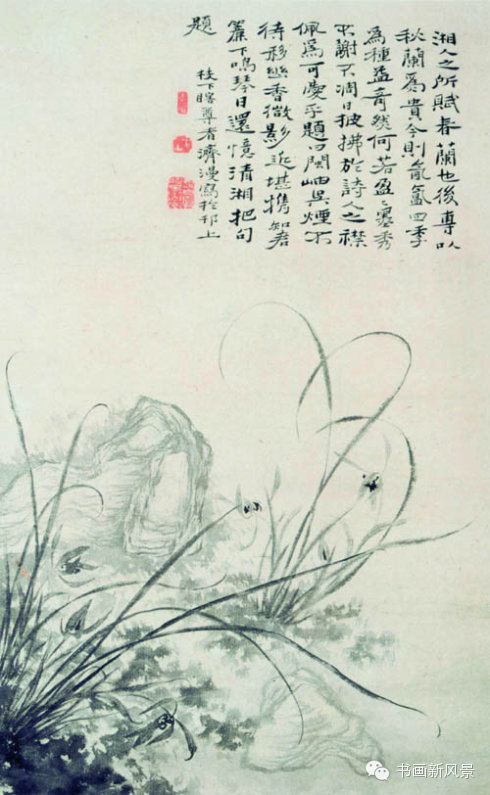 湘人之所賦春蘭也後專以
秋蘭為貴今則能四季
為種益奇然何若盈〻墨秀
不謝不凋日披拂於詩人之襟
佩為可乎題曰閩岫吳煙不
待移幽香微影近堪携知君
簾下鳴琴日還憶清湘把句
題
枝下瞎尊者濟漫寫於邗上
书画新风景